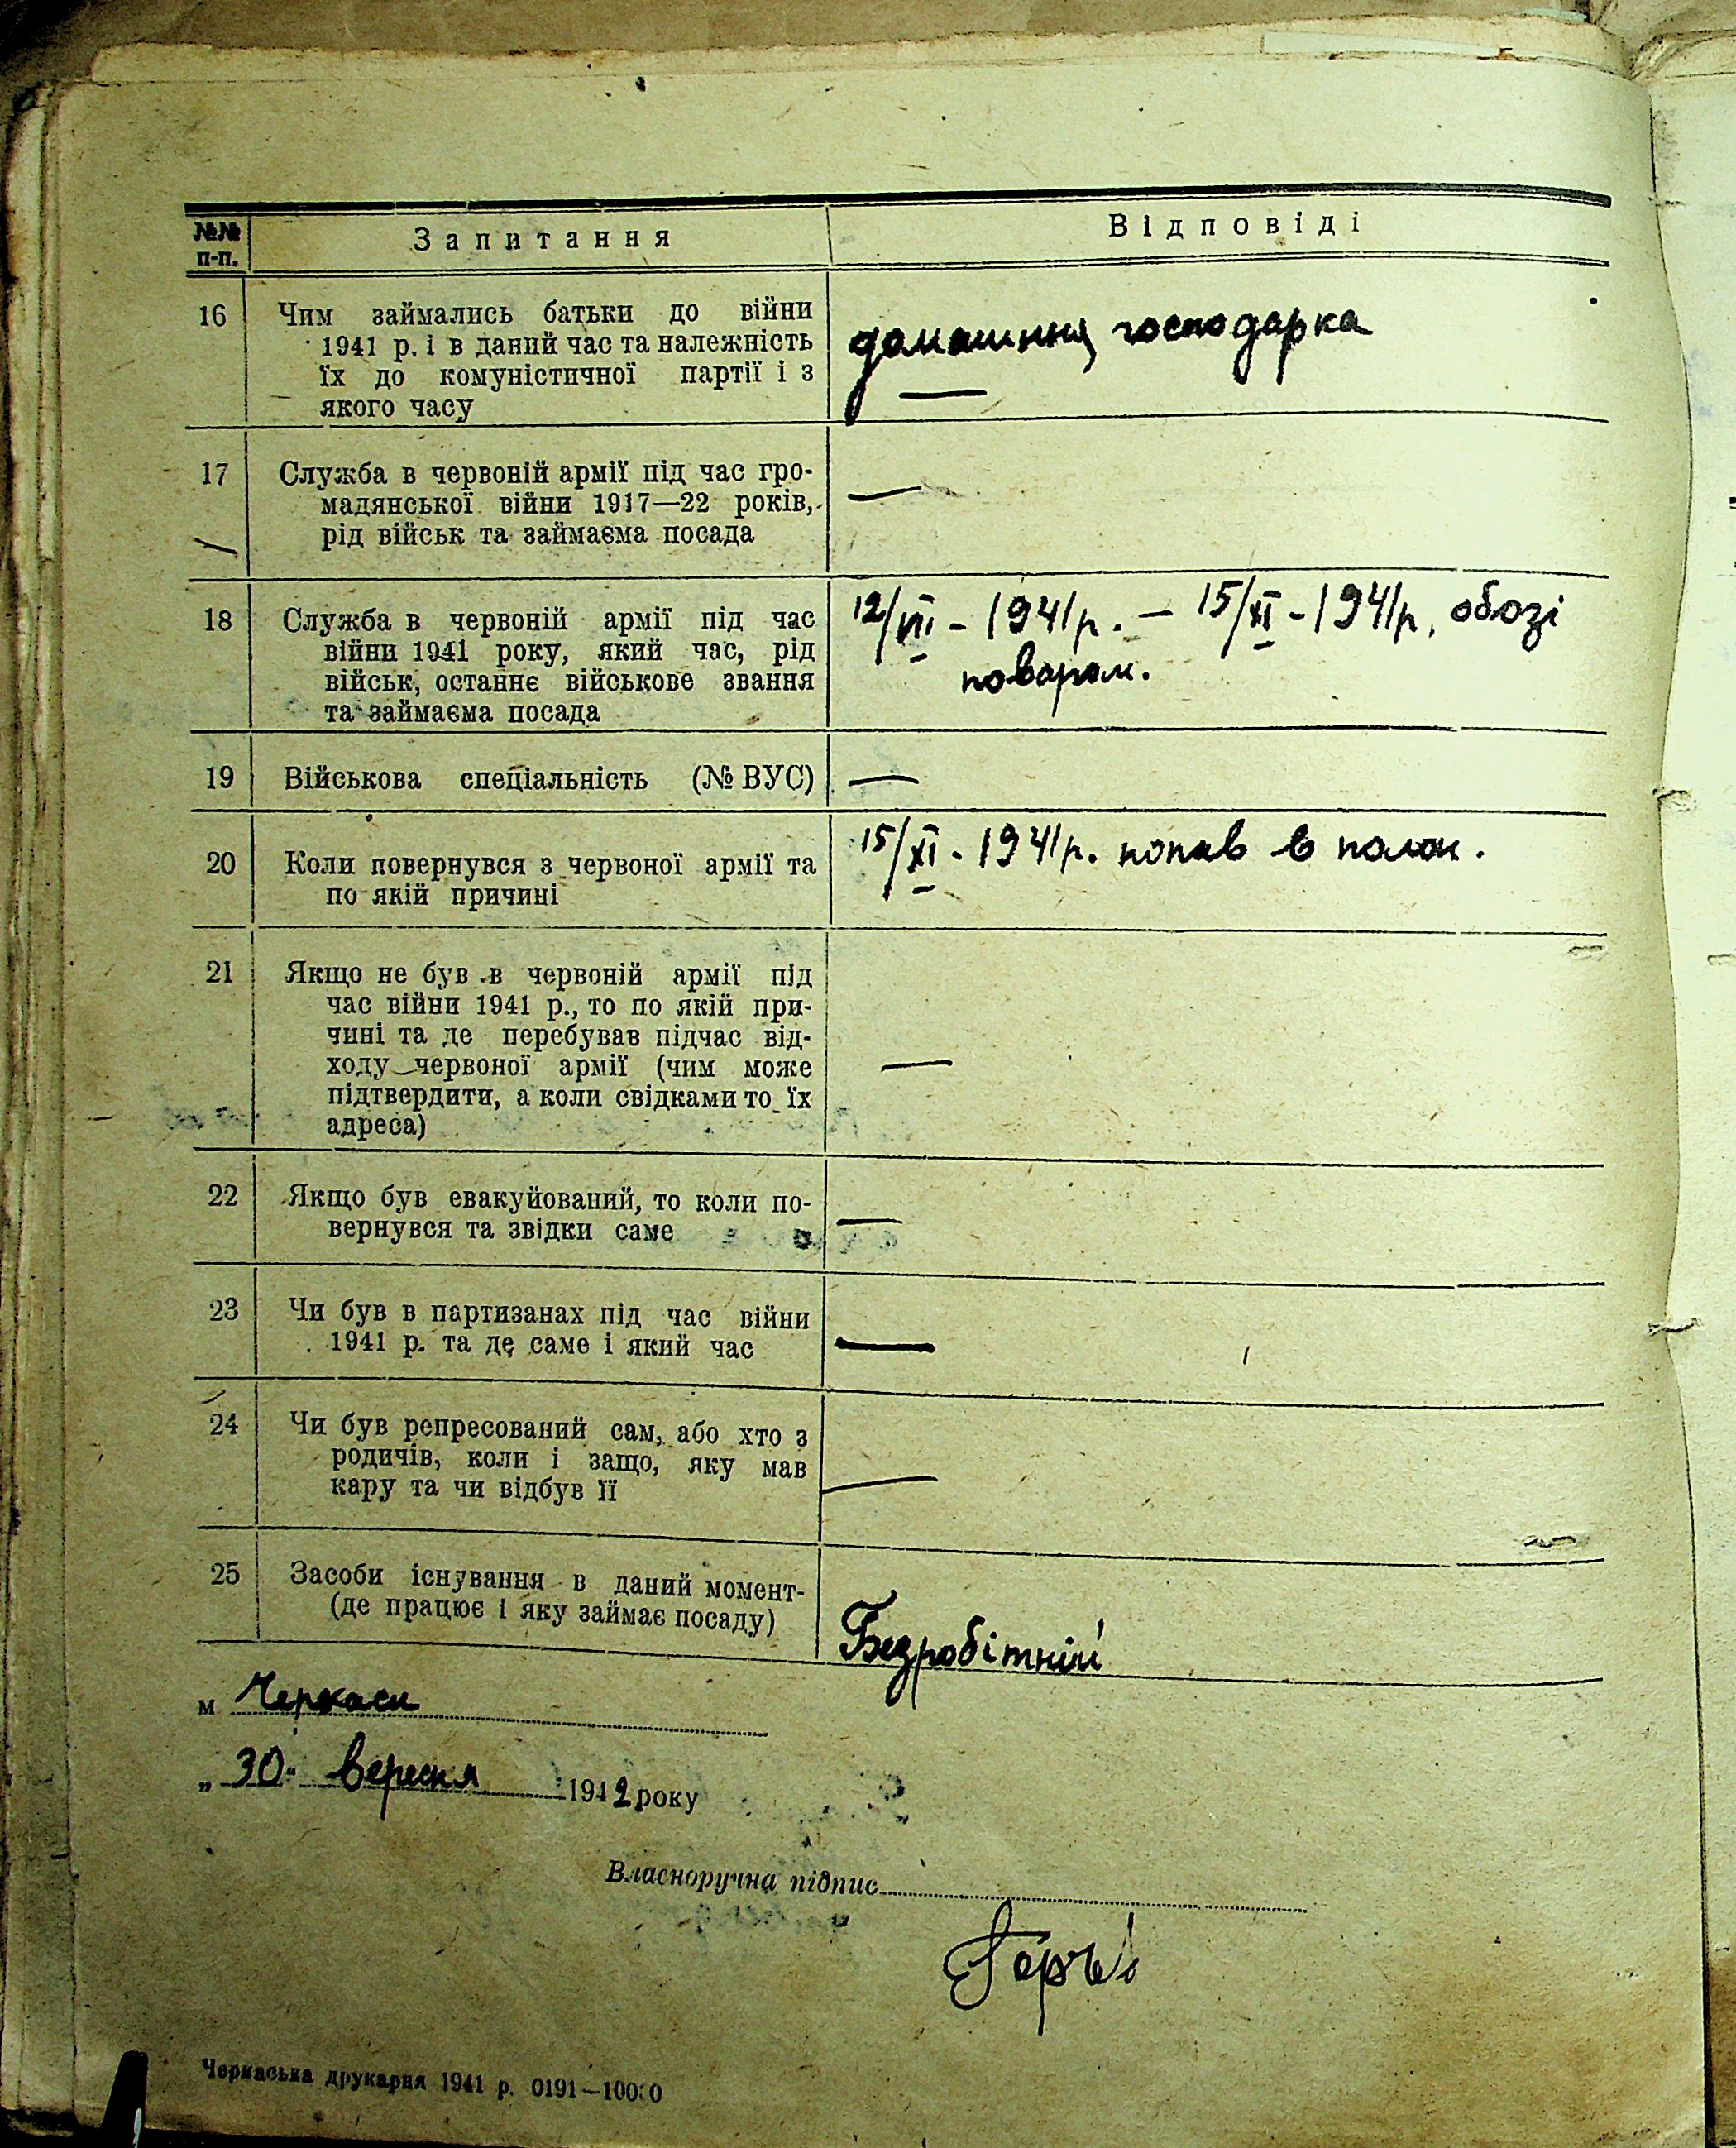 №№ п-п.
Запитання
Відповіді
16 Чим займались батьки до війни
1941 р. і в даний час та належність
їх до комуністичної партії і з
якого часу
домашння господарка
—
17 Служба в червоній армії під час гро-
мадянської війни 1917—22 років,
рід військ та займаєма посада
—
18 Служба в червоній армії під час
війни 1941 року, який час, рід
військ, останнє військове звання
та займаєма посада
12/VII - 1941 р. — 15/XI - 1941 р. обозі
поваром.
19 Військова спеціальність (№ ВУС)
—
20 Коли повернувся з червоної армії та
по якій причині
15/XI - 1941 р. попав в полон.
21 Якщо не був в червоній армії під
час війни 1941 р., то по якій при-
чині та де перебував підчас від-
ходу червоної армії (чим може
підтвердити, а коли свідками то їх
адреса)
—
22 Якщо був евакуйований, то коли по-
вернувся та звідки саме
—
23 Чи був в партизанах під час війни
1941 р. та де саме і який час
—
24 Чи був репресований сам, або хто з
родичів, коли і защо, яку мав
кару та чи відбув її
—
25 Засоби існування в даний момент-
(де працює і яку займає посаду)
Безробітній
м Черкаси
„ 30 " вересня 1942 року
Власноручна підпис
Черкаська друкарня 1941 р. 0191—10000